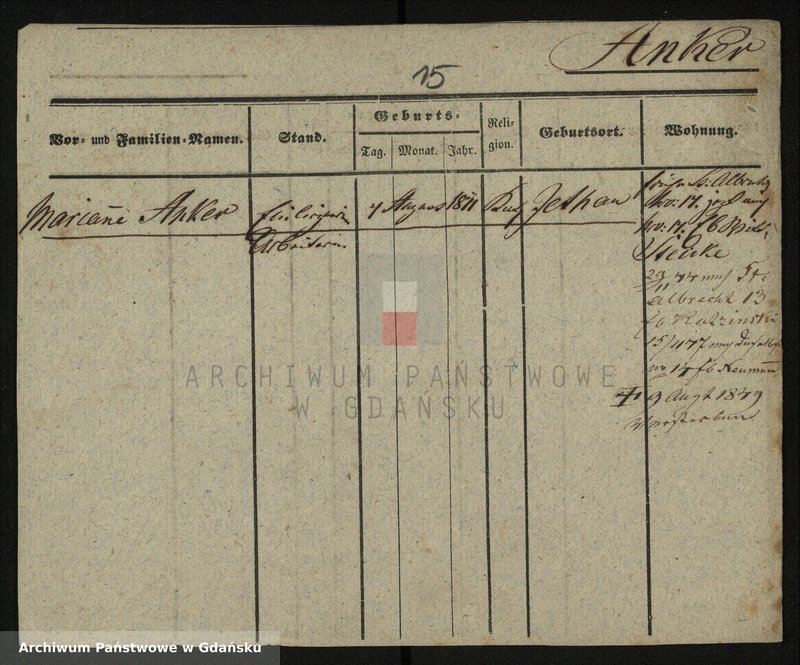 Anker
15
Vor- und Familien-Namen.
Stand.
Geburts-
Tag. Monat. Jahr.
Reli-
gion.
Geburtsort.
Wohnung.
Mariane Anker
Arbeiterin
4 August 1811
Jethau
St: Albrecht
No: 17.
No: 17. fb
29/11 44 nach St.
Albrecht 13
fb Kalzinski
15/4 47
no 14 fb Neumann
† 9 Augt 1849
Verstorben
ARCHIWUM PAŃSTWOWE
W GDAŃSKU
Archiwum Państwowe w Gdańsku